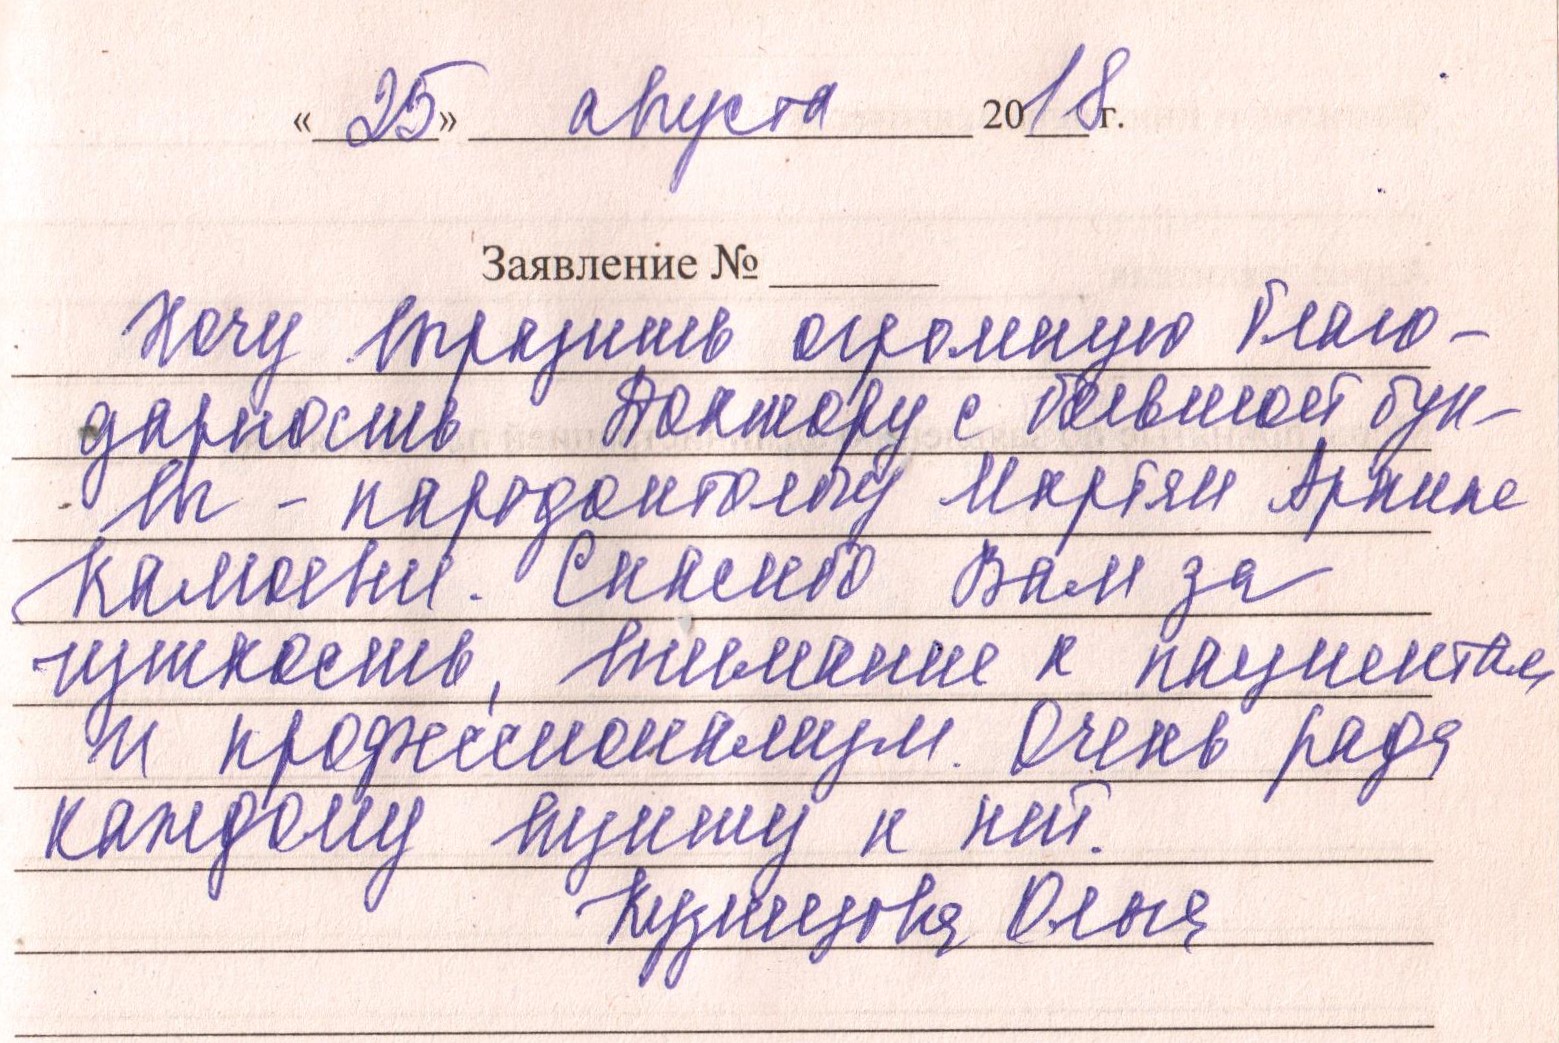 « 25 » августа 2018 г.
Заявление №
Хочу выразить огромную благо-
дарность Доктору с большой бук-
вы - пародонтологу Мкртян Армине
Камоевне. Спасибо Вам за
чуткость, внимание к пациентам,
и профессионализм. Очень рада
каждому визиту к ней.
Кузнецова Ольга